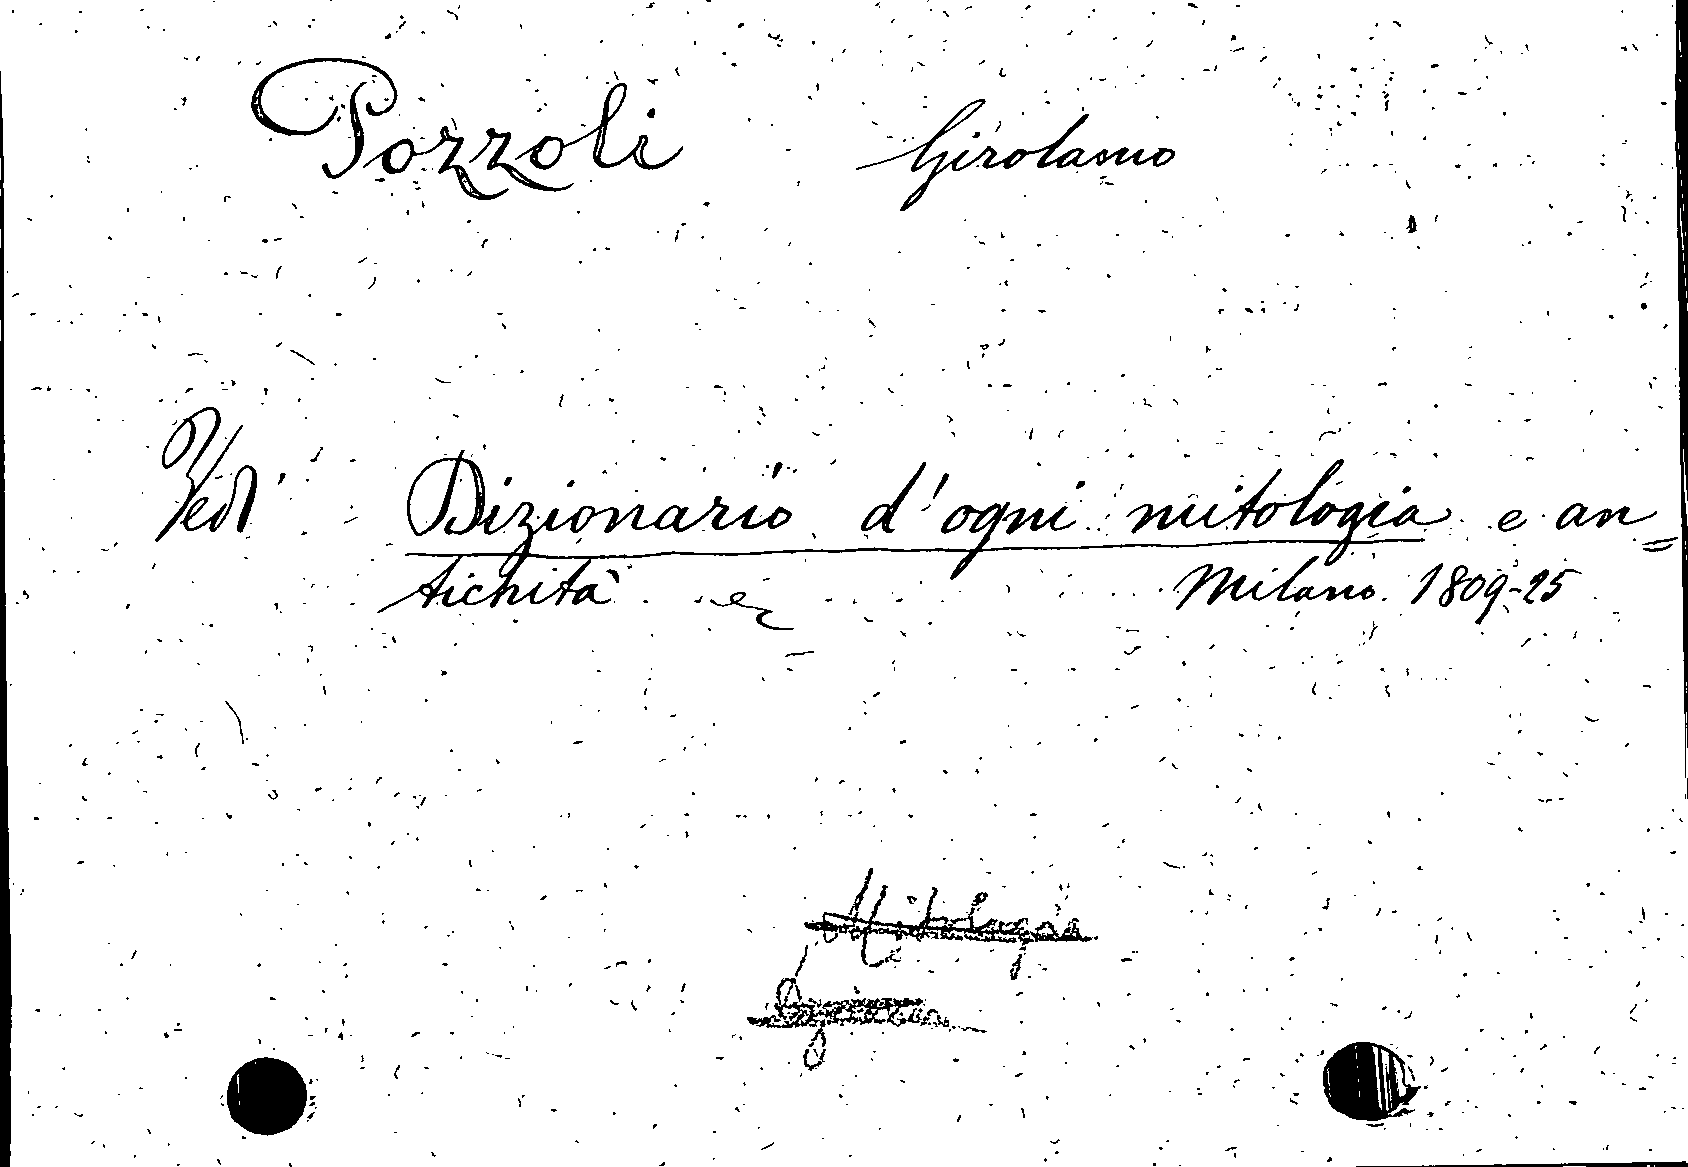 Pozzoli Girolamo
Vedi Dizionario d'ogni mitologia e an=
tichità ec Milano. 1809-25
Mitologia